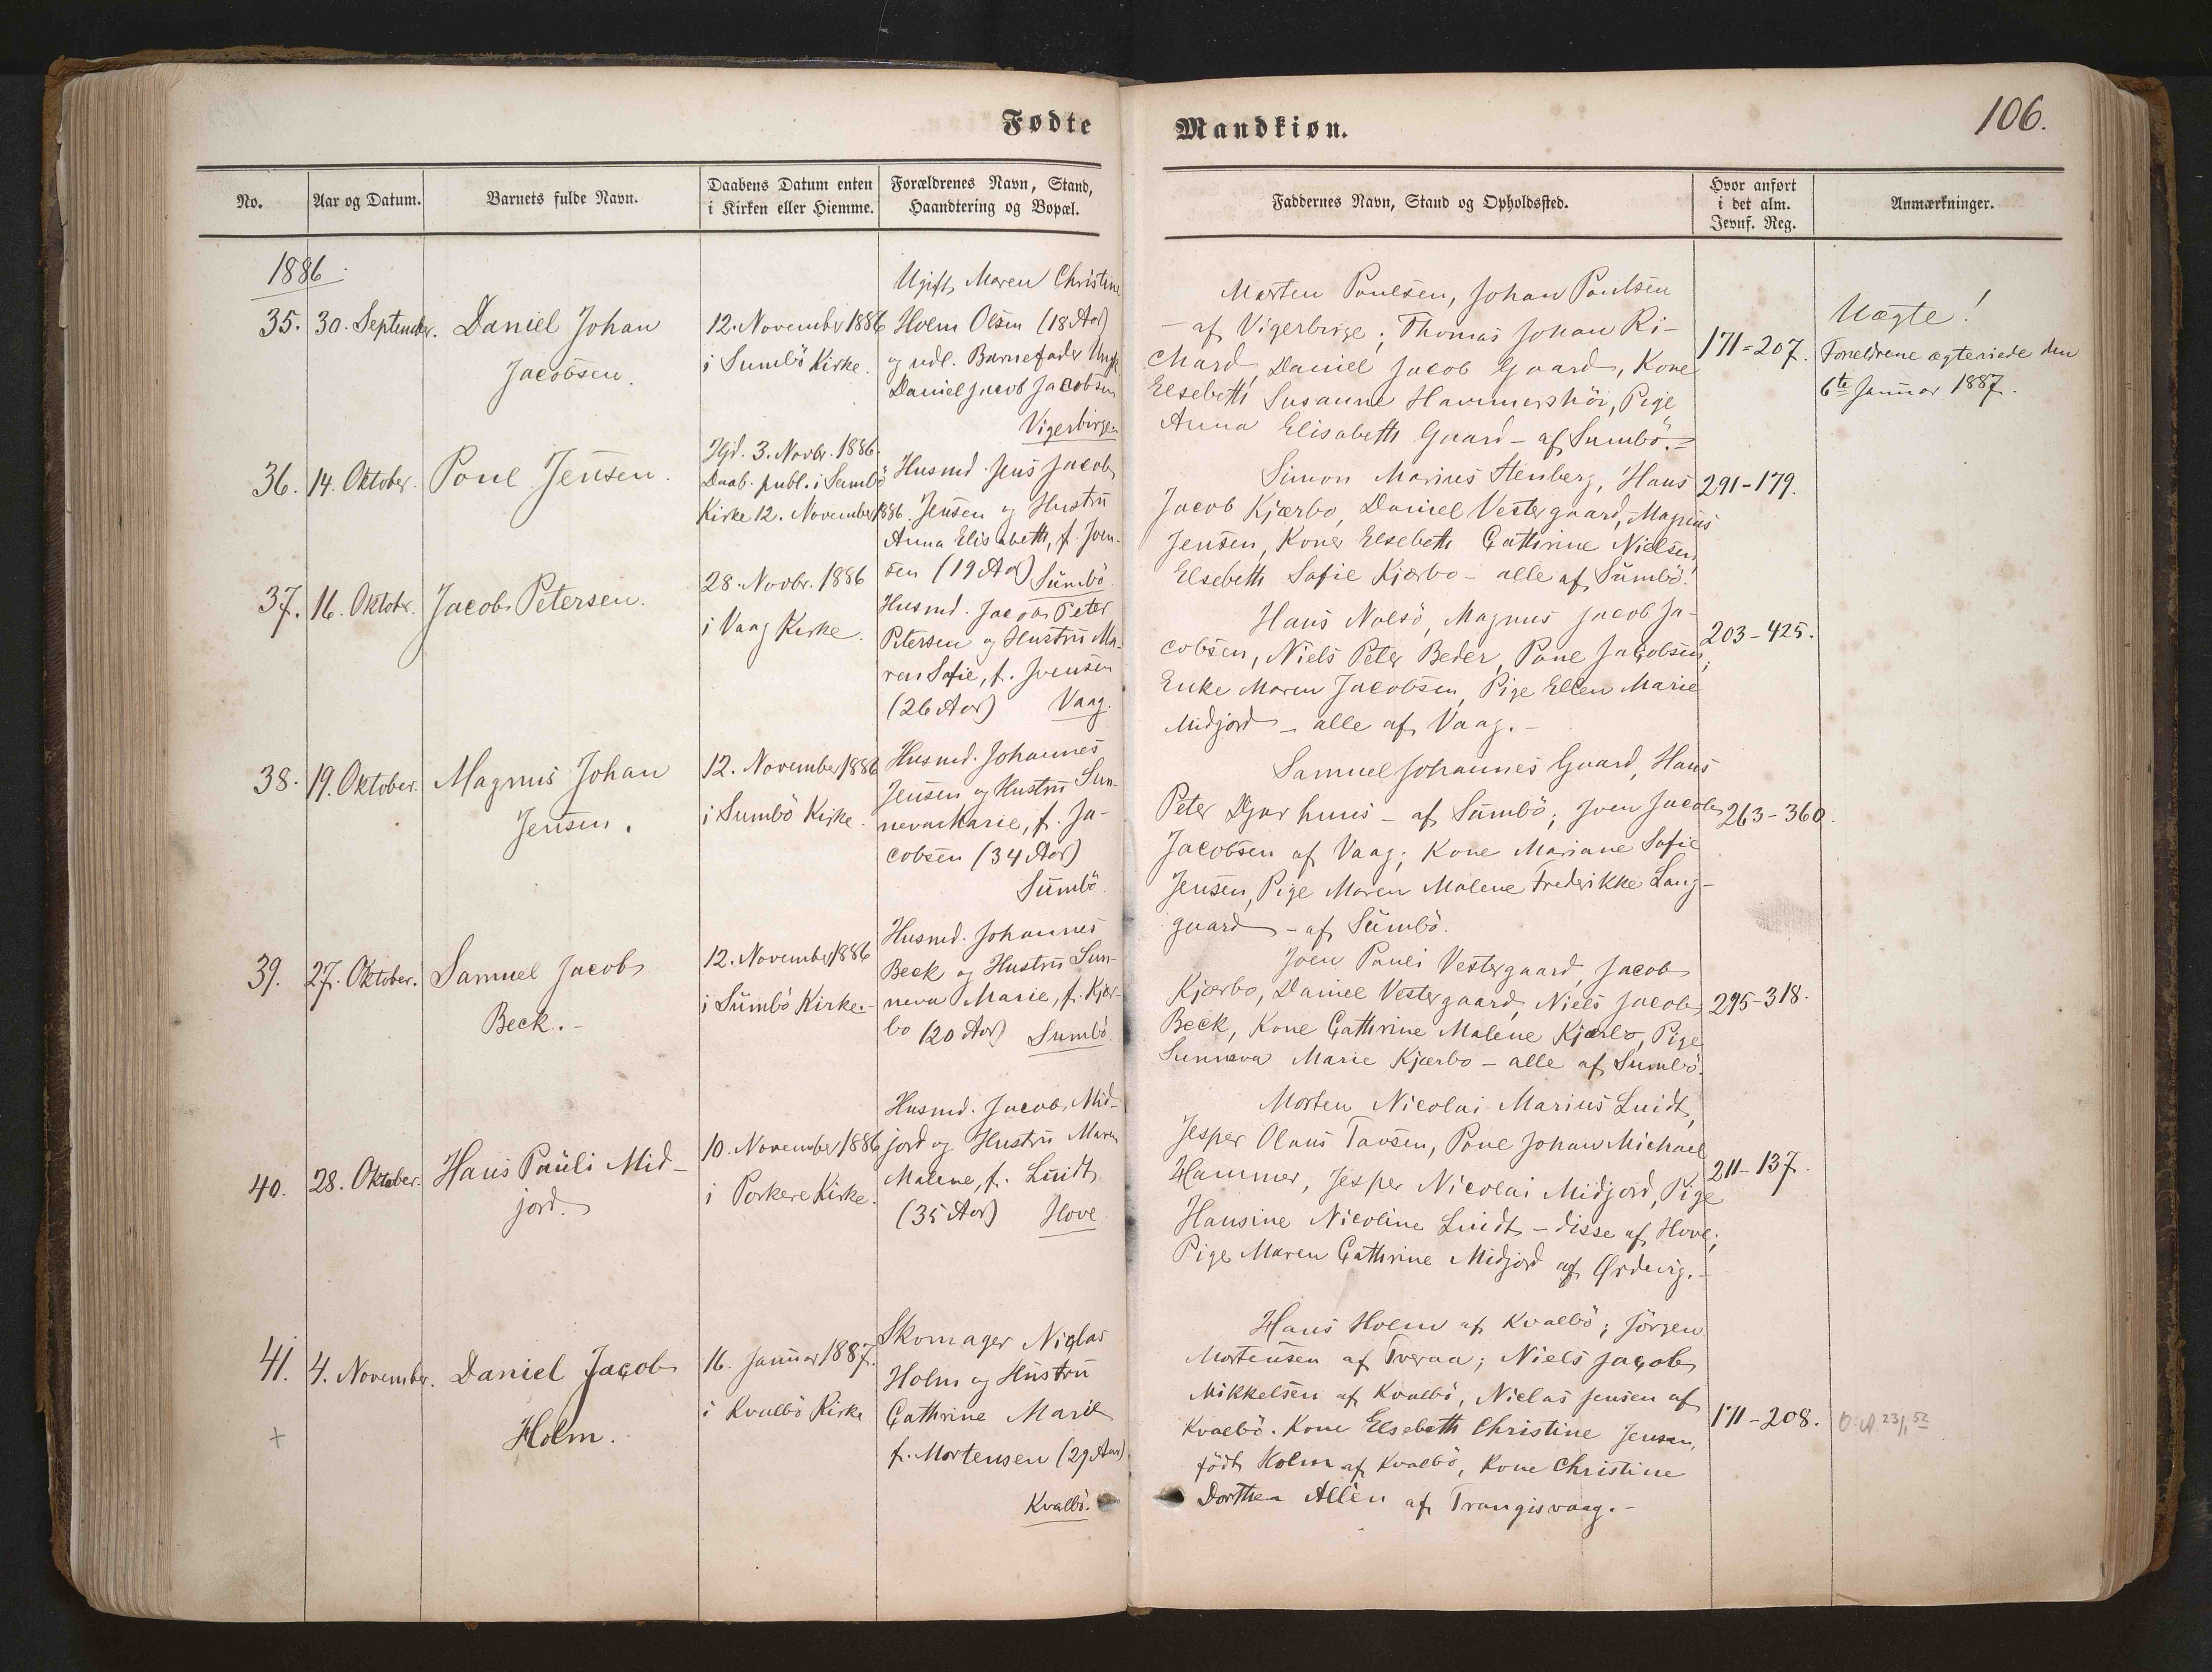 Fødte
Mandkiøn.
106.
No.
Aar og Datum.
Barnets fulde Navn.
Daabens Datum enten
i Kirken eller Hiemme.
Forældrenes Navn, Stand,
Haandtering og Bopæl.
Faddernes Navn, Stand og Opholdssted.
Hvor anført
i det alm.
Jevnf. Reg.
Anmærkninger.
1886.
35.
30. September.
Daniel Johan
Jacobsen.
12. November 1886
i Sumbö Kirke.
Ugift Maren Christine
Holm Olsen (18 Aar)
og udl. Barnefader Ungk
Daniel Jacob Jacobsen
Vigerbirge
Morten Poulsen, Johan Poulsen
- af Vigerbirge; Thomas Johan Ri-
chard, Daniel Jacob Gaard, Kone
Elsebeth Susanne Hammershöi, Pige
Anna Elisabeth Gaard - af Sumbö.-
171=207.
Uægte!
Forældrene ægteviede den
6te Januar 1887.
36.
14. Oktober.
Poul Jensen.
Hjd. 3. Novbr. 1886.
Daab. publ. i Sumbö
Kirke 12. November 1886.
Husmd. Jens Jacob
Jensen og Hustru
Anna Elisabeth, f. Joen-
sen (19 Aar) Sumbö.
Simon Marius Stenberg, Hans
Jacob Kjærbo, Daniel Vestergaard, Magnus
Jensen, Koner Elsebeth Cathrine Nielsen,
Elsebeth Sofie Kjærbo - alle af Sumbö.
291-179.
37.
16. Oktobr.
Jacob Petersen.
28. Novbr. 1886
i Vaag Kirke.
Husmd. Jacob Peter
Petersen og Hustru Ma-
ren Sofie, f. Joensen
(26 Aar) Vaag.
Hans Nolsö, Magnus Jacob Ja-
cobsen, Niels Peter Beder, Poul Jacobsen,
Enke Maren Jacobsen, Pige Ellen Marie
Midjord - alle af Vaag.-
203-425.
38.
19. Oktober.
Magnus Johan
Jensen.
12. November 1886
i Sumbö Kirke.
Husmd. Johannes
Jensen og Hustru Sun-
neva Marie, f. Ja-
cobsen (34 Aar)
Sumbö.
Samuel Johannes Gaard, Hans
Peter Djurhuus - af Sumbö; Joen Jacob
Jacobsen af Vaag; Kone Mariane Sofie
Jensen, Pige Maren Malene Frederikke Lang-
gaard - af Sumbö.
263-360.
39.
27. Oktober.
Samuel Jacob
Beck.-
12. November 1886
i Sumbö Kirke.-
Husmd. Johannes
Beck og Hustru Sun-
neva Marie, f. Kjær-
bo (20 Aar) Sumbö.
Joen Pauli Vestergaard, Jacob
Kjærbo, Daniel Vestergaard, Niels Jacob
Beck, Kone Cathrine Malene Kjærbo, Pige
Sunneva Marie Kjærbo - alle af Sumbö.
295-318.
40.
28. Oktober.
Hans Pauli Mid-
jord.
10. November 1886
i Porkere Kirke.
Husmd. Jacob Mid-
jord og Hustru Maren
Malene, f. Luidt
(35 Aar) Hove.
Morten Nicolai Marius Luidt,
Jesper Olaus Tausen, Poul Johan Michael
Hammer, Jesper Nicolai Midjord, Pige
Hansine Nicoline Luidt - disse af Hove;
Pige Maren Cathrine Midjord af Ørdevig.-
211-137.
41.
4. November.
Daniel Jacob
Holm.
+
16. Januar 1887.
i Kvalbö Kirke
Skomager Niclas
Holm og Hustru
Cathrine Marie
f. Mortensen (29 Aar)
Kvalbö.
Hans Holm af Kvalbö; Jörgen
Mortensen af Tveraa; Niels Jacob
Mikkelsen af Kvalbö, Niclas Jensen af
Kvalbö. Kone Elsebeth Christine Jensen,
födt Holm af Kvalbö, Kone Christine
Dorthea Allén af Trangisvaag.-
171-208.